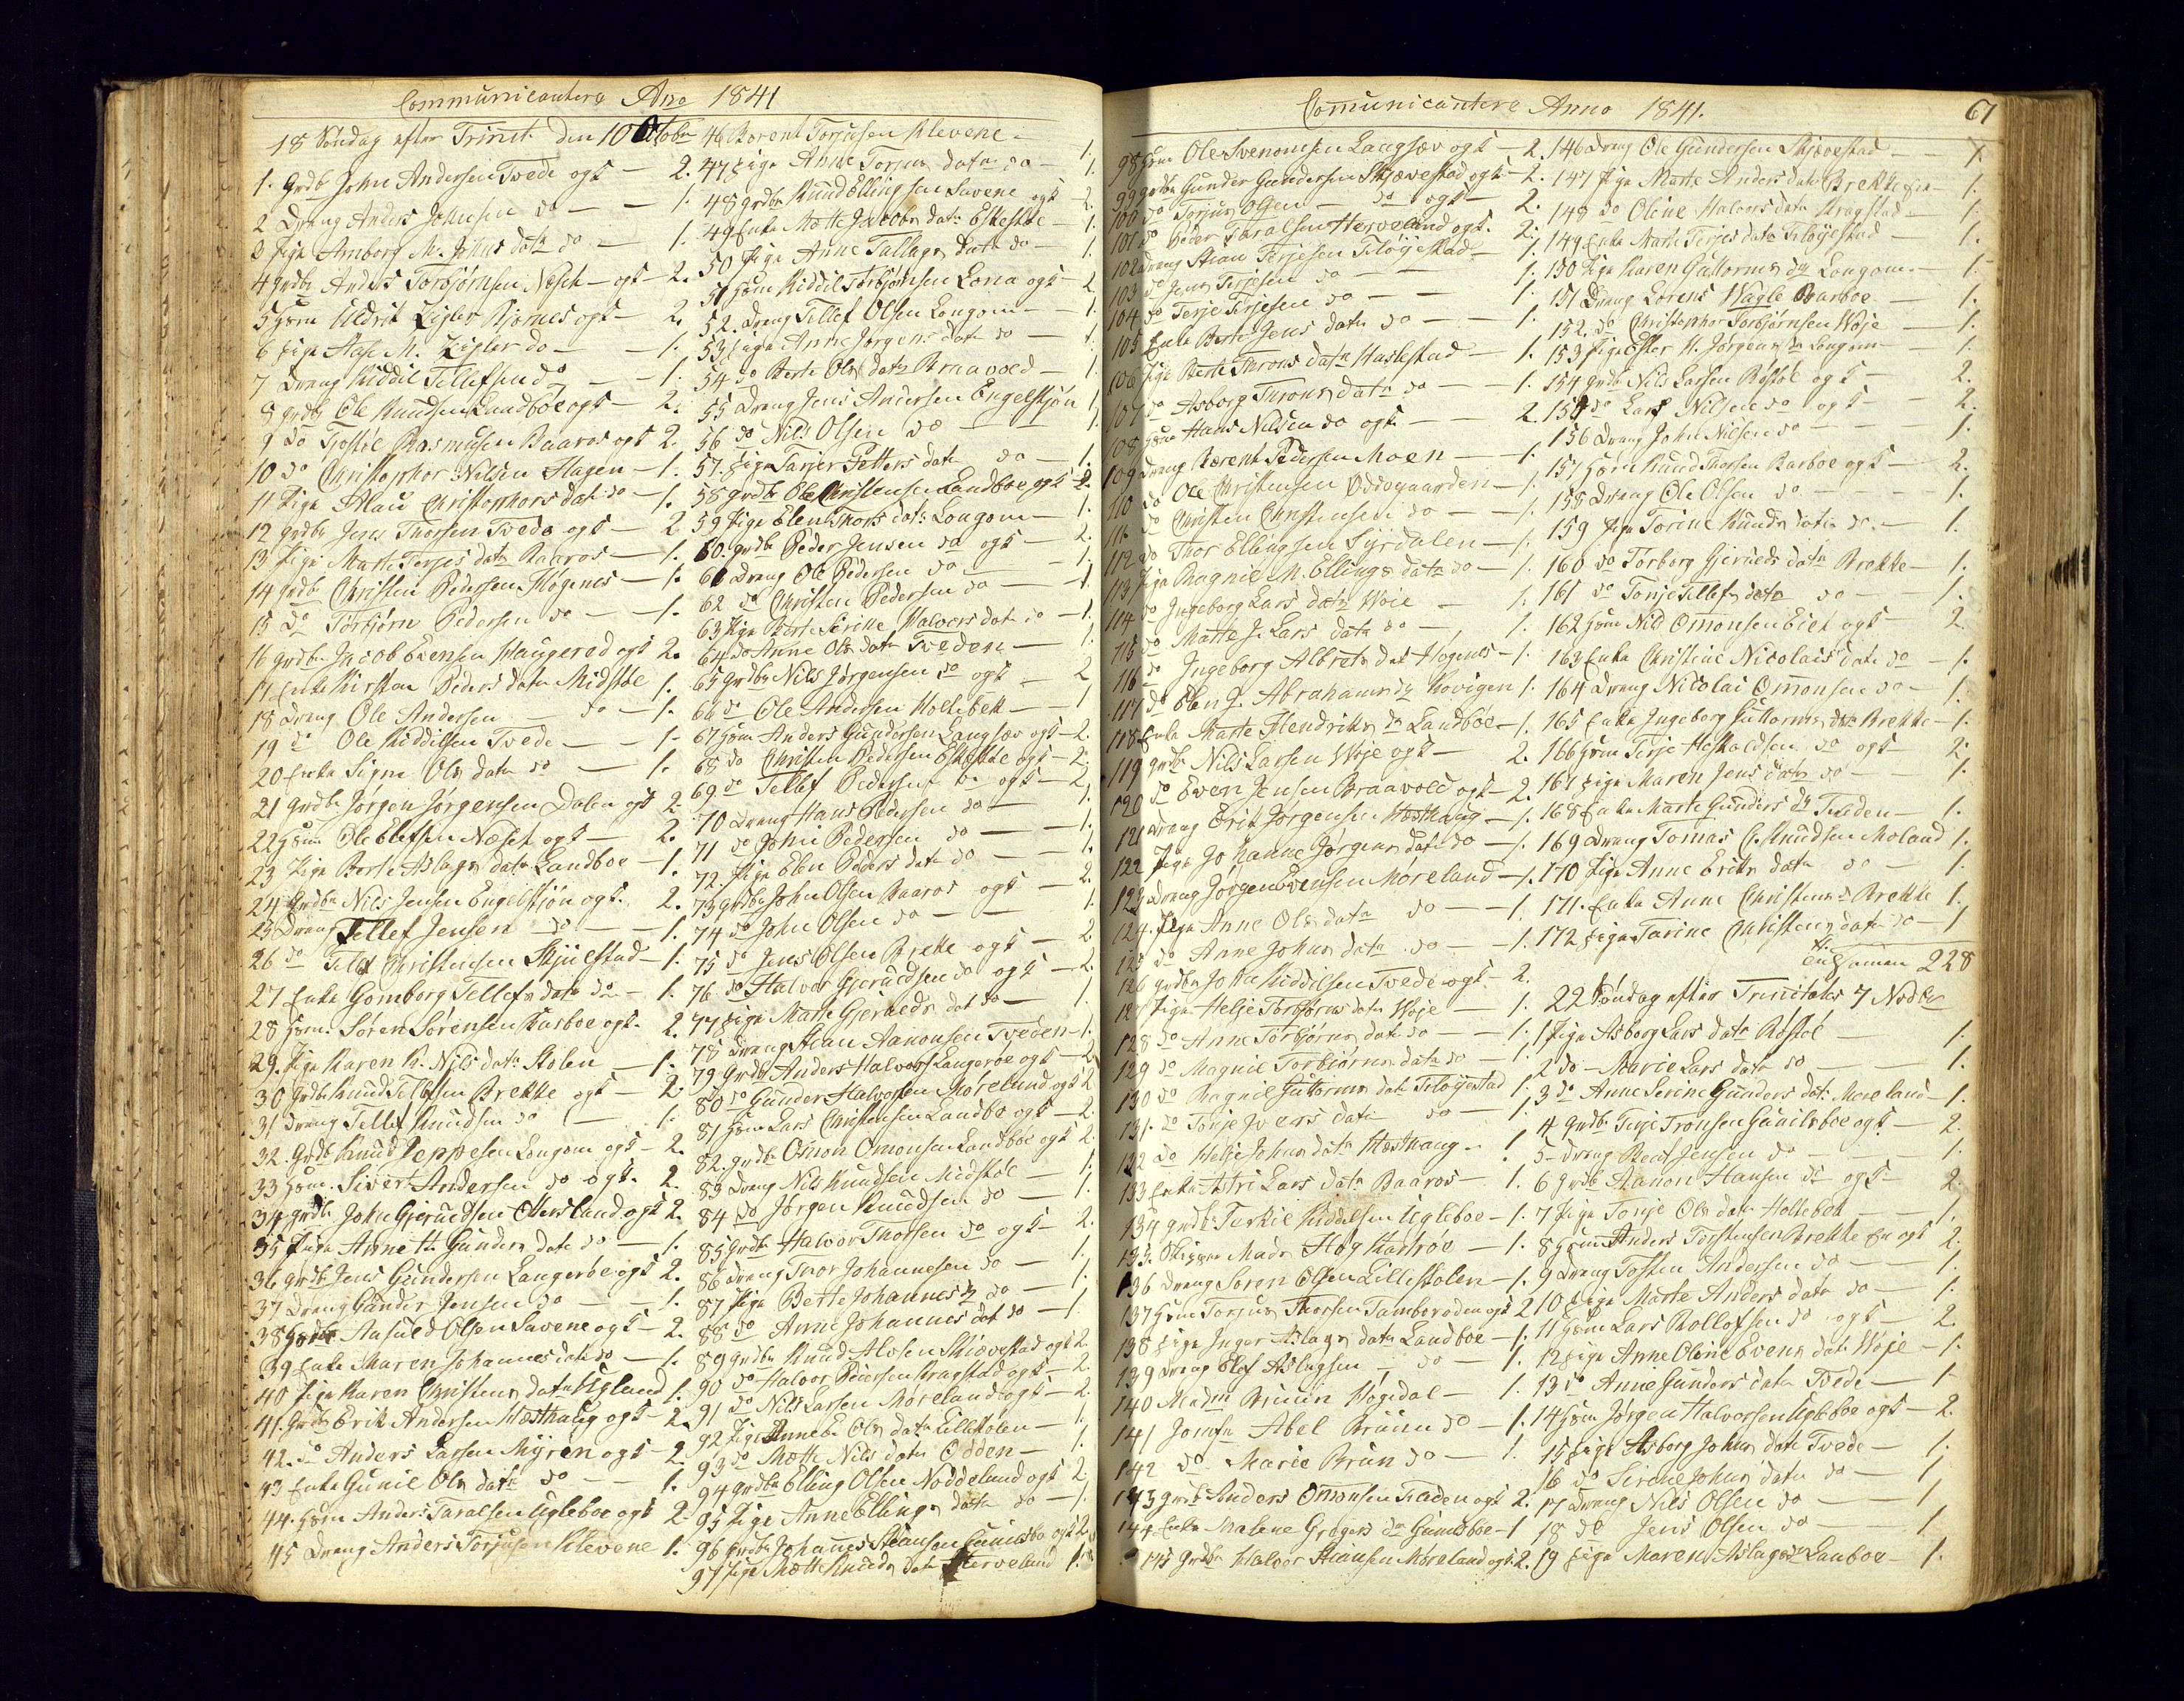 Communicantere Ano 1841
18 Søndag efter Trinit. den 10 Octobr
1. Grdbr John Andersen Tvede ogk — 2.
2 Dreng Anders Johnsen do — 1.
3 Pige Amborg M. Johns datr do — 1.
4 Grdbr Anders Torbjørnsen Næset — ogk — 2.
5 Huusm Uldrik Zigler Bjørnes ogk — 2.
6 Pige Aase M. Zigler do — 1.
7 Dreng Kiddil Tellefsen do — 1.
8 Grdbr Ole Knudsen Landboe ogk — 2.
9 do Tjostel Rasmusen Baaros ogk 2.
10 do Christopher Nilsen Hagen — 1.
11 Pige Christophers datr do — 1.
12 Grdbr Jens Thorsen Tvede ogk — 2.
13 Pige Marte Terjes datr Baaros — 1.
14 Grdbr Christen Pedersen Høgenes — 1.
15 do Torbjørn Pedersen do — 1.
16 Grdbr Jacob Evensen Haugerød ogk 2.
17 Enke Kirsten Peders datr Midstøe 1.
18 Dreng Ole Andersen — do — 1.
19 do Ole Kiddilsen Tvede — 1.
20 Enke Signe Ols datr do — 1.
21 Grdbr Jørgen Jørgensen Dalen ogk 2.
22 Huusm Ole Elefsen Næset ogk — 2.
23 Pige Berte Aslags datr Landboe — 1.
24 Grdbr Nils Jensen Engelskjøn ogk. 2.
25 Dreng Tellef Jensen do — 1.
26 do Telef Christensen Skjulestad — 1.
27 Enke Gomborg Tellefs datr do — 1.
28 Huusm Søren Sørensen Barboe ogk. 2.
29. Pige Karen K. Nils datr Stølen — 1.
30 Grdbr Knud Tellefsen Brekke ogk — 2.
31 Dreng Tellef Knudsen do — 1.
32. Grdbr Knud Jeppesen Longom ogk — 2.
33 Huusm. Siver Andersen do ogk. 2.
34 Grdbr John Gjeruldsen Ottersland ogk 2.
35 Pige Anne M. Gunders datr do — 1.
36 Grdbr Jens Gundersen Langerøe ogk 2.
37 Dreng Gunder Jensen do — 1.
38 Grdbr Aasuld Olsen Savene ogk — 2.
39 Enke Maren Johannes datr do — 1.
40 Pige Karen Christens datr Ugland 1.
41. Grdbr Erik Andersen Hæsthaug ogk — 2.
42. do Anders Larsen Myren ogk — 2.
43 Enke Gunil Ols datr do — 1.
44. Huusm Anders Taralsen Ugleboe ogk 2.
45 Dreng Anders Torjusen Klevene 1.
46 Berent Torjusen Klevene — 1.
47 Pige Anne Torjus datr do — 1.
48 Grdbr Knud Ellingsen Savene ogk — 2.
49 Enke Mette Jacobs datr Eskedøe — 1.
50 Pige Anne Tallags datr do — 1.
51 Huusm Kiddil Torbjørnsen Longa ogk — 2.
52. Dreng Tellef Olsen Longom — 1.
53 Pige Anne Jørgens datr do — 1.
54 do Berte Ols datr Braavold — 1.
55 Dreng Jens Andersen Engelskjøn 1.
56 do Nils Olsen do — 1.
57. Pige Tarjer Petters datr do — 1.
58 Grdbr Ole Christensen Landboe ogk 2.
59 Pige Elen Thors datr Longom — 1.
60. Grdbr Peder Jensen do ogk — 2.
61 Dreng Ole Pedersen do — 1.
62 do Christen Pedersen do — 1.
63 Pige Berte Serine Halvors datr do — 1.
64 do Anne Ols datr Tveden — 1.
65 Grdbr Nils Jørgensen do ogk — 2
66 do Ole Andersen Holtebek — 1
67 Huusm Anders Gundersen Langsæv ogk — 2.
68 do Christen Pedersen Eskedøe ogk — 2.
69. do Tellef Pedersen do ogk — 2
70 Dreng Hans Pedersen do — 1.
71 do John Pedersen do — 1.
72. Pige Elen Peders datr do — 1.
73 Grdbr John Olsen Baaros ogk — 2.
74 do John Olsen do — 1.
75 do Jens Olsen Brekke ogk — 2
76 do Halvor Gjeruldsen do ogk — 2.
77 Pige Marte Gjerulds datr do — 1
78 Dreng Stean Aanonsen Tveden — 1.
79 Grdbr Anders Halvors Langerøe ogk — 2
80 do Gunder Halvorsen Møreland ogk 2
81 Huusm Lars Christensen Landbø ogk — 2.
82. Grdbr Osmon Omonsen Landbøe ogk 2.
83 Dreng Nils Knudsen Midstøl — 1.
84 do Jørgen Knudsen do — 1.
85 Grdbr Halvor Thorsen do ogk — 2.
86 Dreng Thor Johannesen do — 1.
87 Pige Berte Johannes dr do — 1.
88 do Anne Johannes dat do — 1
89 Grdbr Knud Alvsen Skiævestad ogk 2
90 do Halvor Pedersen Kragstad ogk — 2.
91 do Nils Larsen Møreland ogk — 2.
92 Pige Anne E. Ols datr Lillestølen — 1.
93 do Mette Nils datr Odden — 1.
94 Grdbr Elling Olsen Noddeland ogk 2
95 Pige Anne Ellings datr do — 1.
96 Grdbr Johannes Steansen Gunildsbo ogk 2.
97 Pige Mette Knuds datr Herveland 1.
Comunicantere Anno 1841.
67
98 Huusm Ole Svenomsen Langsæv ogk — 2.
99 Grdbr Gunder Gundersen Skjævestad ogk — 2.
100 do Torjus Olsen — do ogk — 2.
101 do Peder Taralsen Herveland ogk. 2.
102 Dreng Stian Terjesen Tiløjestad — 1.
103 do Jens Terjesen do — 1.
104 do Terje Terjesen do — 1.
105 Enke Berte Jens datr do — 1.
106 Pige Berte Throns datr Haslestad — 1.
107 do Asborg Throns datr do — 1.
108 Huusm Hans Nilsen do ogk. — 2.
109 Dreng Berent Pedersen Moen — 1.
110 do Ole Christensen Ødegaarden — 1.
111 do Christen Christensen do — 1.
112 do Thor Ellingsen Syrdalen — 1.
113 Pige Ragnil M. Ellings datr do — 1.
114 do Ingeborg Lars datr Woie — 1.
115 do Marte J. Lars datr do — 1.
116 do Ingeborg Albrets dat Høgenes — 1.
117 do Elen J. Abrahams dr Hovigen 1.
118 Enke Marte Hendriks dr Landbøe — 1.
119 Grdbr Nils Larsen Woje ogk — 2.
120 do Even Jensen Braavold ogk — 2.
121 Dreng Erik Jørgensen Hæsthaug — 1.
122 Pige Johanne Jørgens datr do — 1.
123 Dreng Jørgen Evensen Møreland — 1.
124. Pige Anne Ols datr do — 1.
125 do Anne Johns datr do — 1.
126 Grdbr John Kiddilsen Tvede ogk — 2.
127 Pige Helje Torbjørns datr Woje — 1.
128 do Anne Torbjørns datr do — 1.
129 do Magnil Torbiørns datr do — 1.
130 do Ragnil Guttorms datr Tiløjestad 1.
131. do Tonje Ivers datr do — 1.
132 do Helje Johns datr Hæsthaug — 1.
133 Enke Astri Lars datr Baaros — 1.
134 Grdbr Terkil Kiddilsen Ugleboe — 1.
135. Skipper Mads Høg Hastrøe — 1.
136 Dreng Søren Olsen Lillestølen — 1.
137 Huusm Torjus Thorsen Tamberoden ogk 2
138 Pige Inger Aslags datr Landboe — 1.
139 Dreng Elef Aslagsen — do — 1.
140 Madm Bruun Høgedal — 1.
141 Jomfr Abel Bruun do — 1.
142 do Marie Brun do — 1.
143 Grdbr Anders Omonsen Tveden ogk 2.
144 Enke Malene Gregers dr Gunildsboe — 1
145 Grdbr Halvor Steansen Møreland ogk. 2.
146 Dreng Ole Gundersen Skjævestad — 1.
147 Pige Marte Anders datr Brekke — 1.
148 do Oline Halvors datr Kragstad — 1.
149 Enke Marte Terjes datr Tiløjestad — 1.
150 Pige Karen Guttorms dr Longom — 1.
151 Dreng Lorens Wagle Barboe — 1.
152. do Christopher Torbjørnsen Woje — 1.
153 Pige Ester K. Jørgens dr Longom — 1.
154 Grdbr Nils Larsen Røstøl ogk — 2.
155 do Lars Nilsen do ogk — 2.
156 Dreng John Nilsen do — 1.
157 Huusm Knud Thorsen Barboe ogk — 2.
158 Dreng Ole Olsen do — 1.
159 Pige Torine Knuds datr do. — 1.
160 do Torborg Gjerulds datr Brekke — 1.
161 do Tonje Tellefs datr do — 1.
162 Huusm Nils Omonsen Eiet ogk — 2
163 Enke Christine Nicolais datr do — 1.
164 Dreng Nicolai Omonsen do — 1.
165 Enke Ingeborg Guttorms dr Brekke — 1.
166 Huusm Terje Heskoldsen do ogk 2.
167 Pige Maren Jens datr do — 1.
168 Enke Marte Gunders dr Tveden — 1.
169 Dreng Tomas C. Knudsen Moland 1.
170 Pige Anne Eriks datr do — 1.
171. Enke Anne Christens dr Brekke 1.
172 Pige Tarine Christens datr do — 1
Tilsamen 228
22 Søndag efter Trinitatis 7 Novbr
1 Pige Asborg Lars datr Røstøl — 1.
2 do — Marie Lars datr do — 1.
3 do Anne Serine Gunders datr Møreland — 1.
4 Grdbr Terje Tronsen Gunildsboe ogk — 2.
5 — Dreng Jensen do — 1.
6 Grdbr Aanon Hansen do ogk — 2.
7 Pige Tonje Ols datr Holtebek — 1.
8 Huusm Anders Torstensen Brekke ogk 2.
9 Dreng Tosten Andersen do — 1.
10 Pige Marte Anders datr do — 1.
11 Huusm Lars Rollofsen do ogk — 2.
12 Pige Anne Oline Evens datr Woje — 1.
13 do Anne Gunders datr Tvede — 1
14 Huusm Jørgen Halvorsen Ugleboe ogk — 2.
15 Pige Asborg Johns datr Tvede — 1.
16 do Sirene Johns datr do — 1
17 Dreng Nils Olsen do — 1
18 do Jens Olsen do — 1
19 Pige Maren Aslags dr Lanboe — 1.